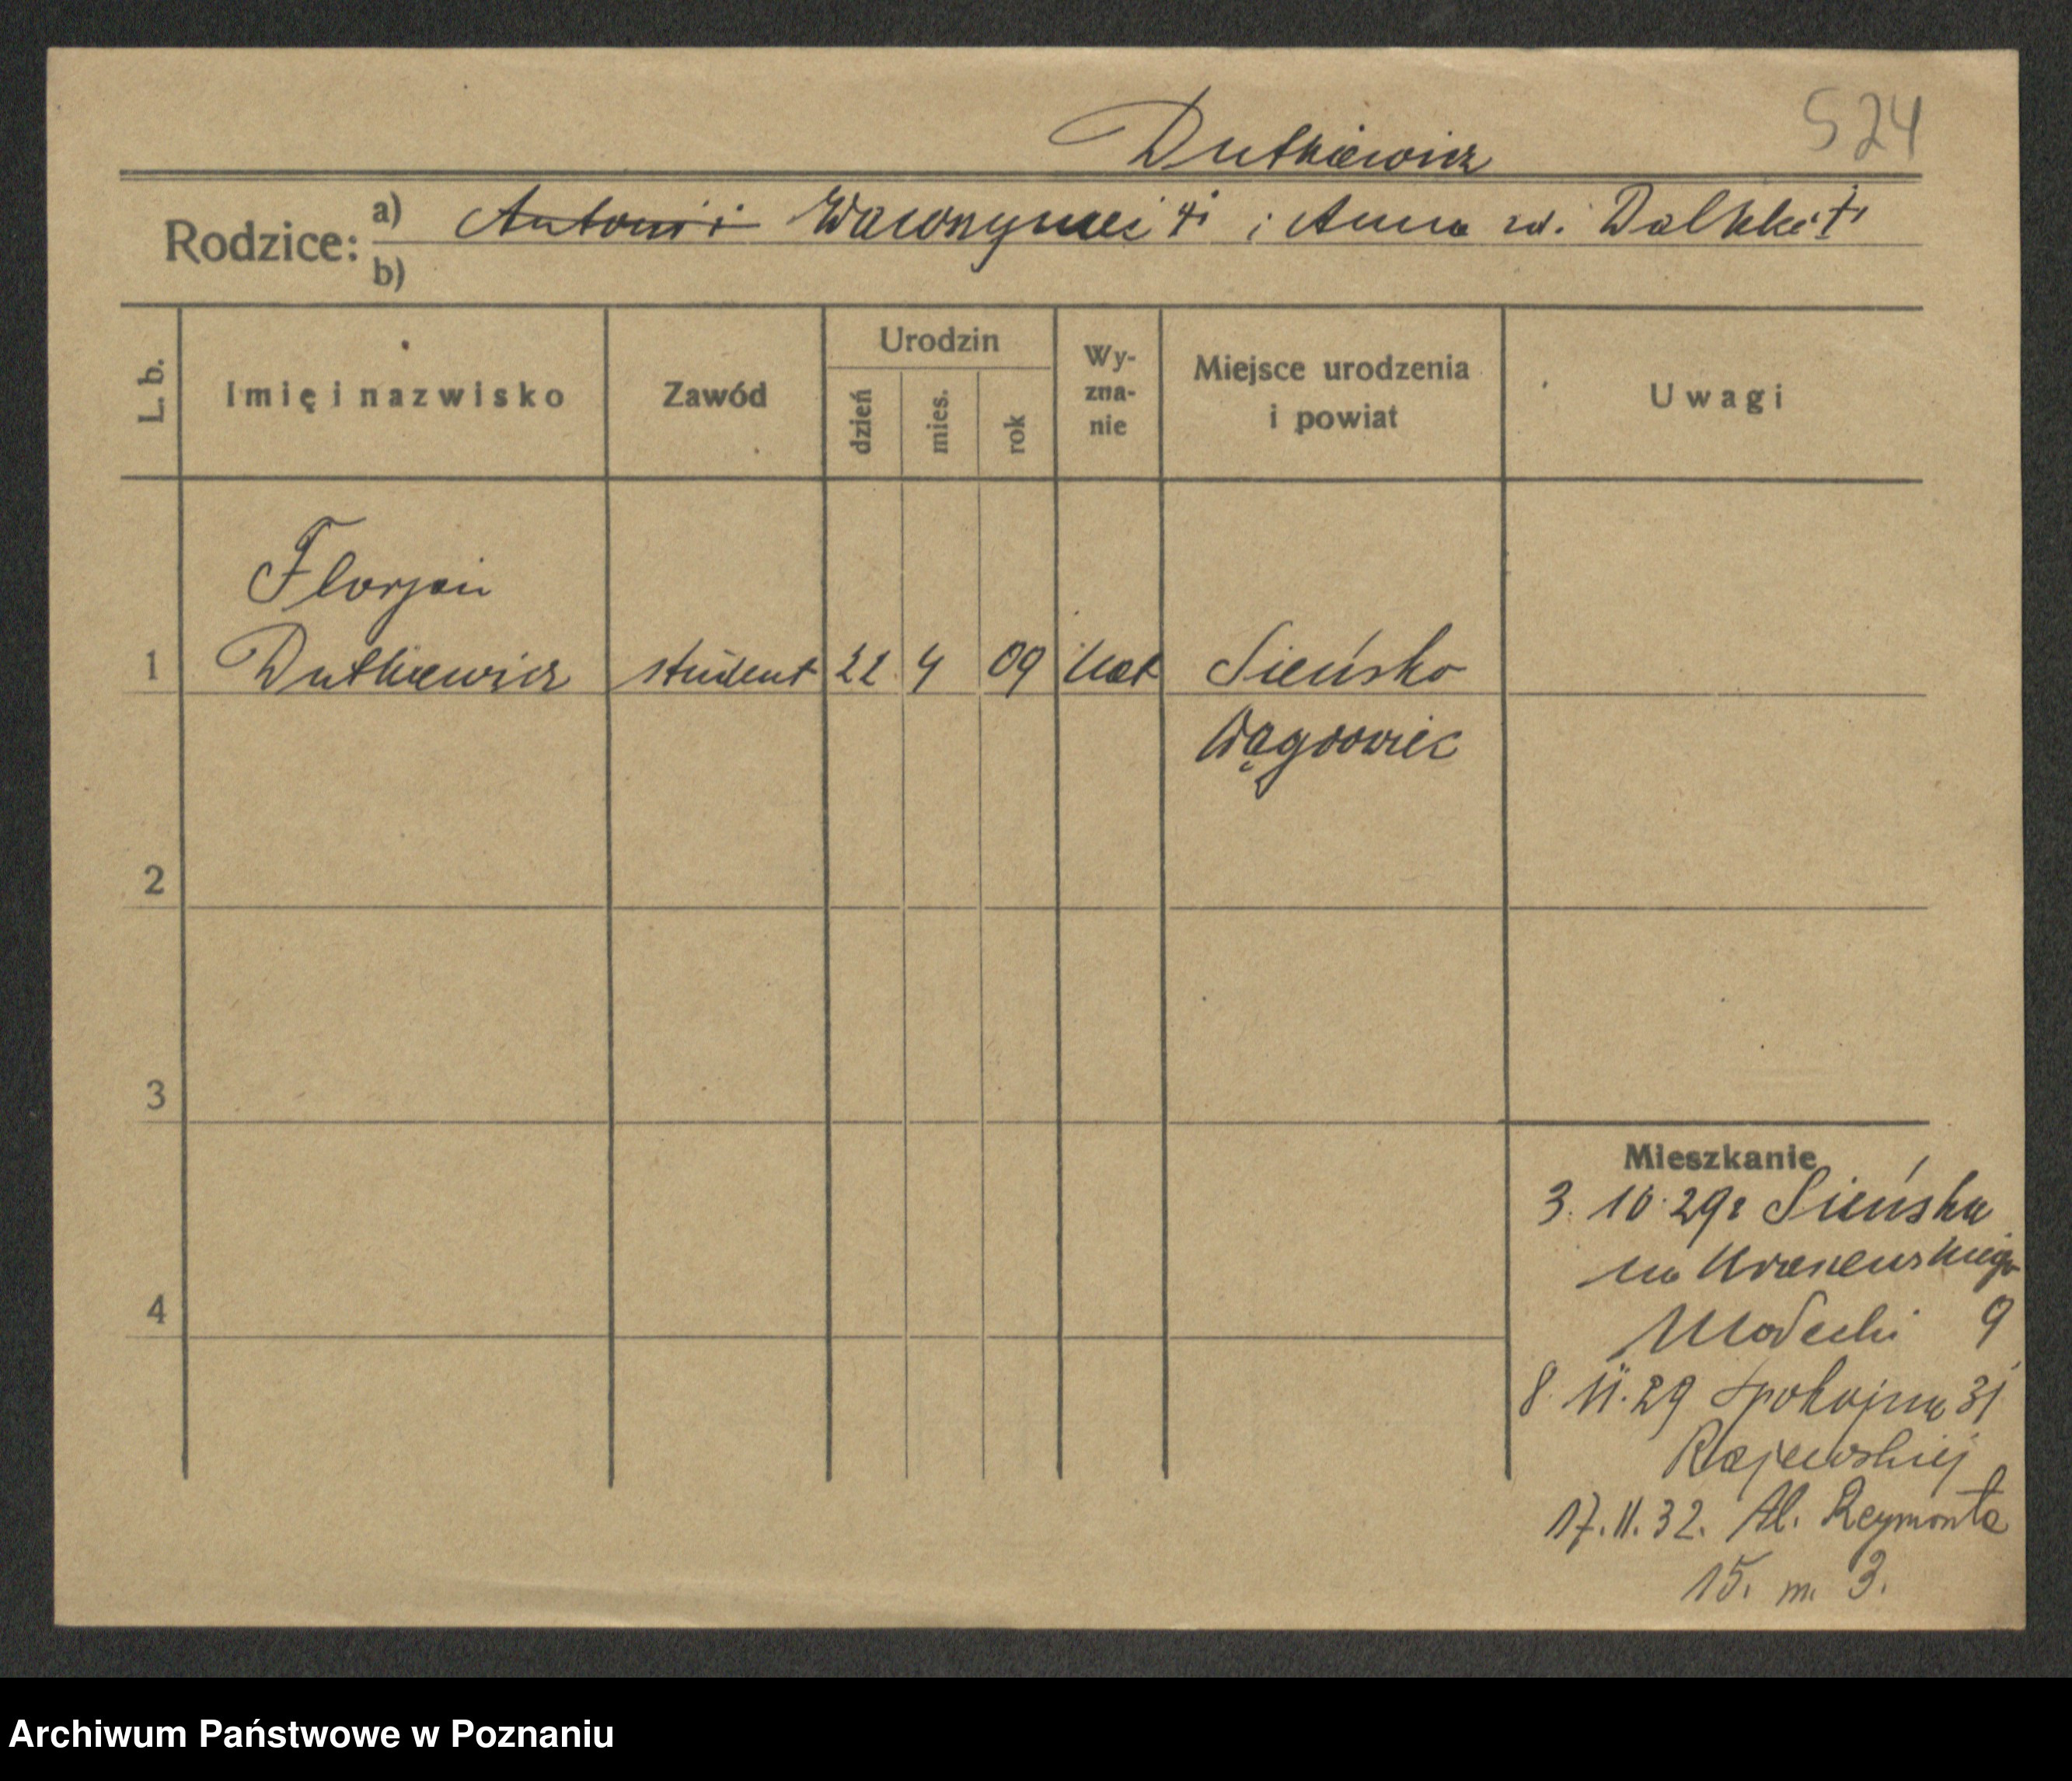 524
Dutkiewicz
Rodzice: a) Antoni i Wawrzyniec i Anna zd.
b)
L. b. Imię i nazwisko Zawód Urodzin dzień mies. rok Wy-zna-nie Miejsce urodzenia i powiat Uwagi
Florjan
1 Dutkiewicz student 22 4 09 kat Sieńsko
Wągrowiec
2
3
Mieszkanie
3. 10. 29 z Sieńska
na Kraszewskiego
4
9
8. 11. 29 Spokojna 31
Rajewskiej
17. 11. 32. Al. Reymonta
15. m. 3.
Archiwum Państwowe w Poznaniu